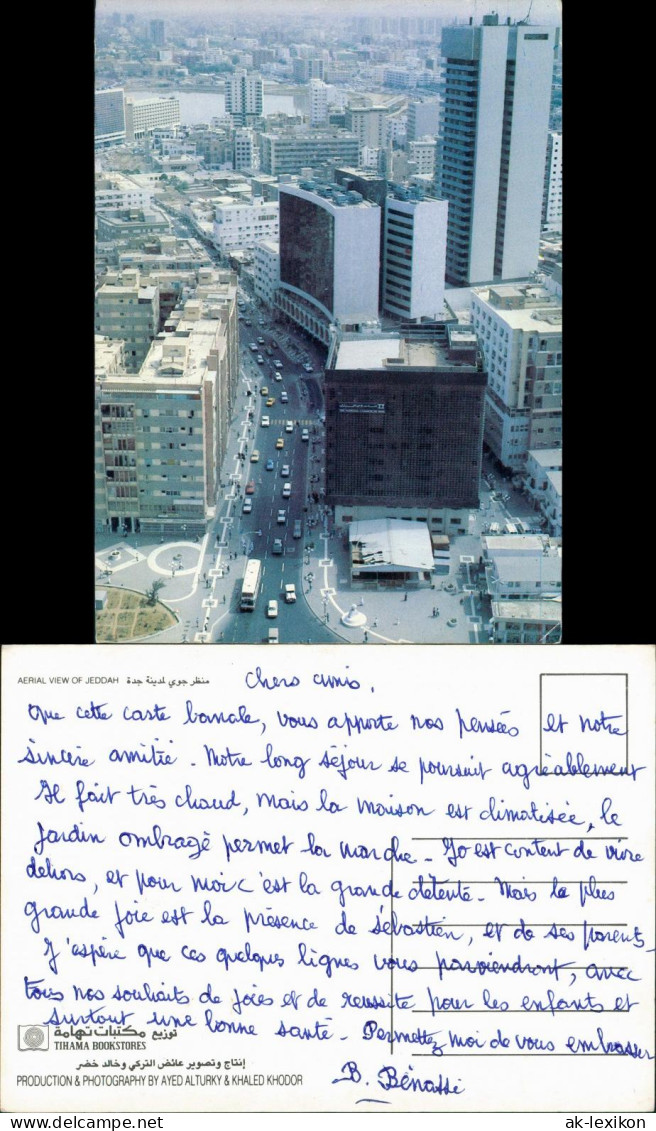 AERIAL VIEW OF JEDDAH منظر جوي لمدينة جدة
Chers amis,
Que cette carte banale, vous apporte nos pensées et notre
sincère amitié. Notre long séjour se poursuit agréablement
Il fait très chaud, mais la maison est climatisée, le
jardin ombragé permet la marche. Jo est content de vivre
dehors, et pour moi c'est la grande détente. Mais la plus
grande joie est la présence de Sébastien, et de ses parents.
J'espère que ces quelques lignes vous parviendront, avec
tous nos souhaits de joies et de réussite pour les enfants et
surtout une bonne santé. Permettez moi de vous embrasser
B. Bénassi
توزيع مكتبات تهامة
TIHAMA BOOKSTORES
إنتاج وتصوير عائض التركي وخالد خضر
PRODUCTION & PHOTOGRAPHY BY AYED ALTURKY & KHALED KHODOR
ak-lexikon.com